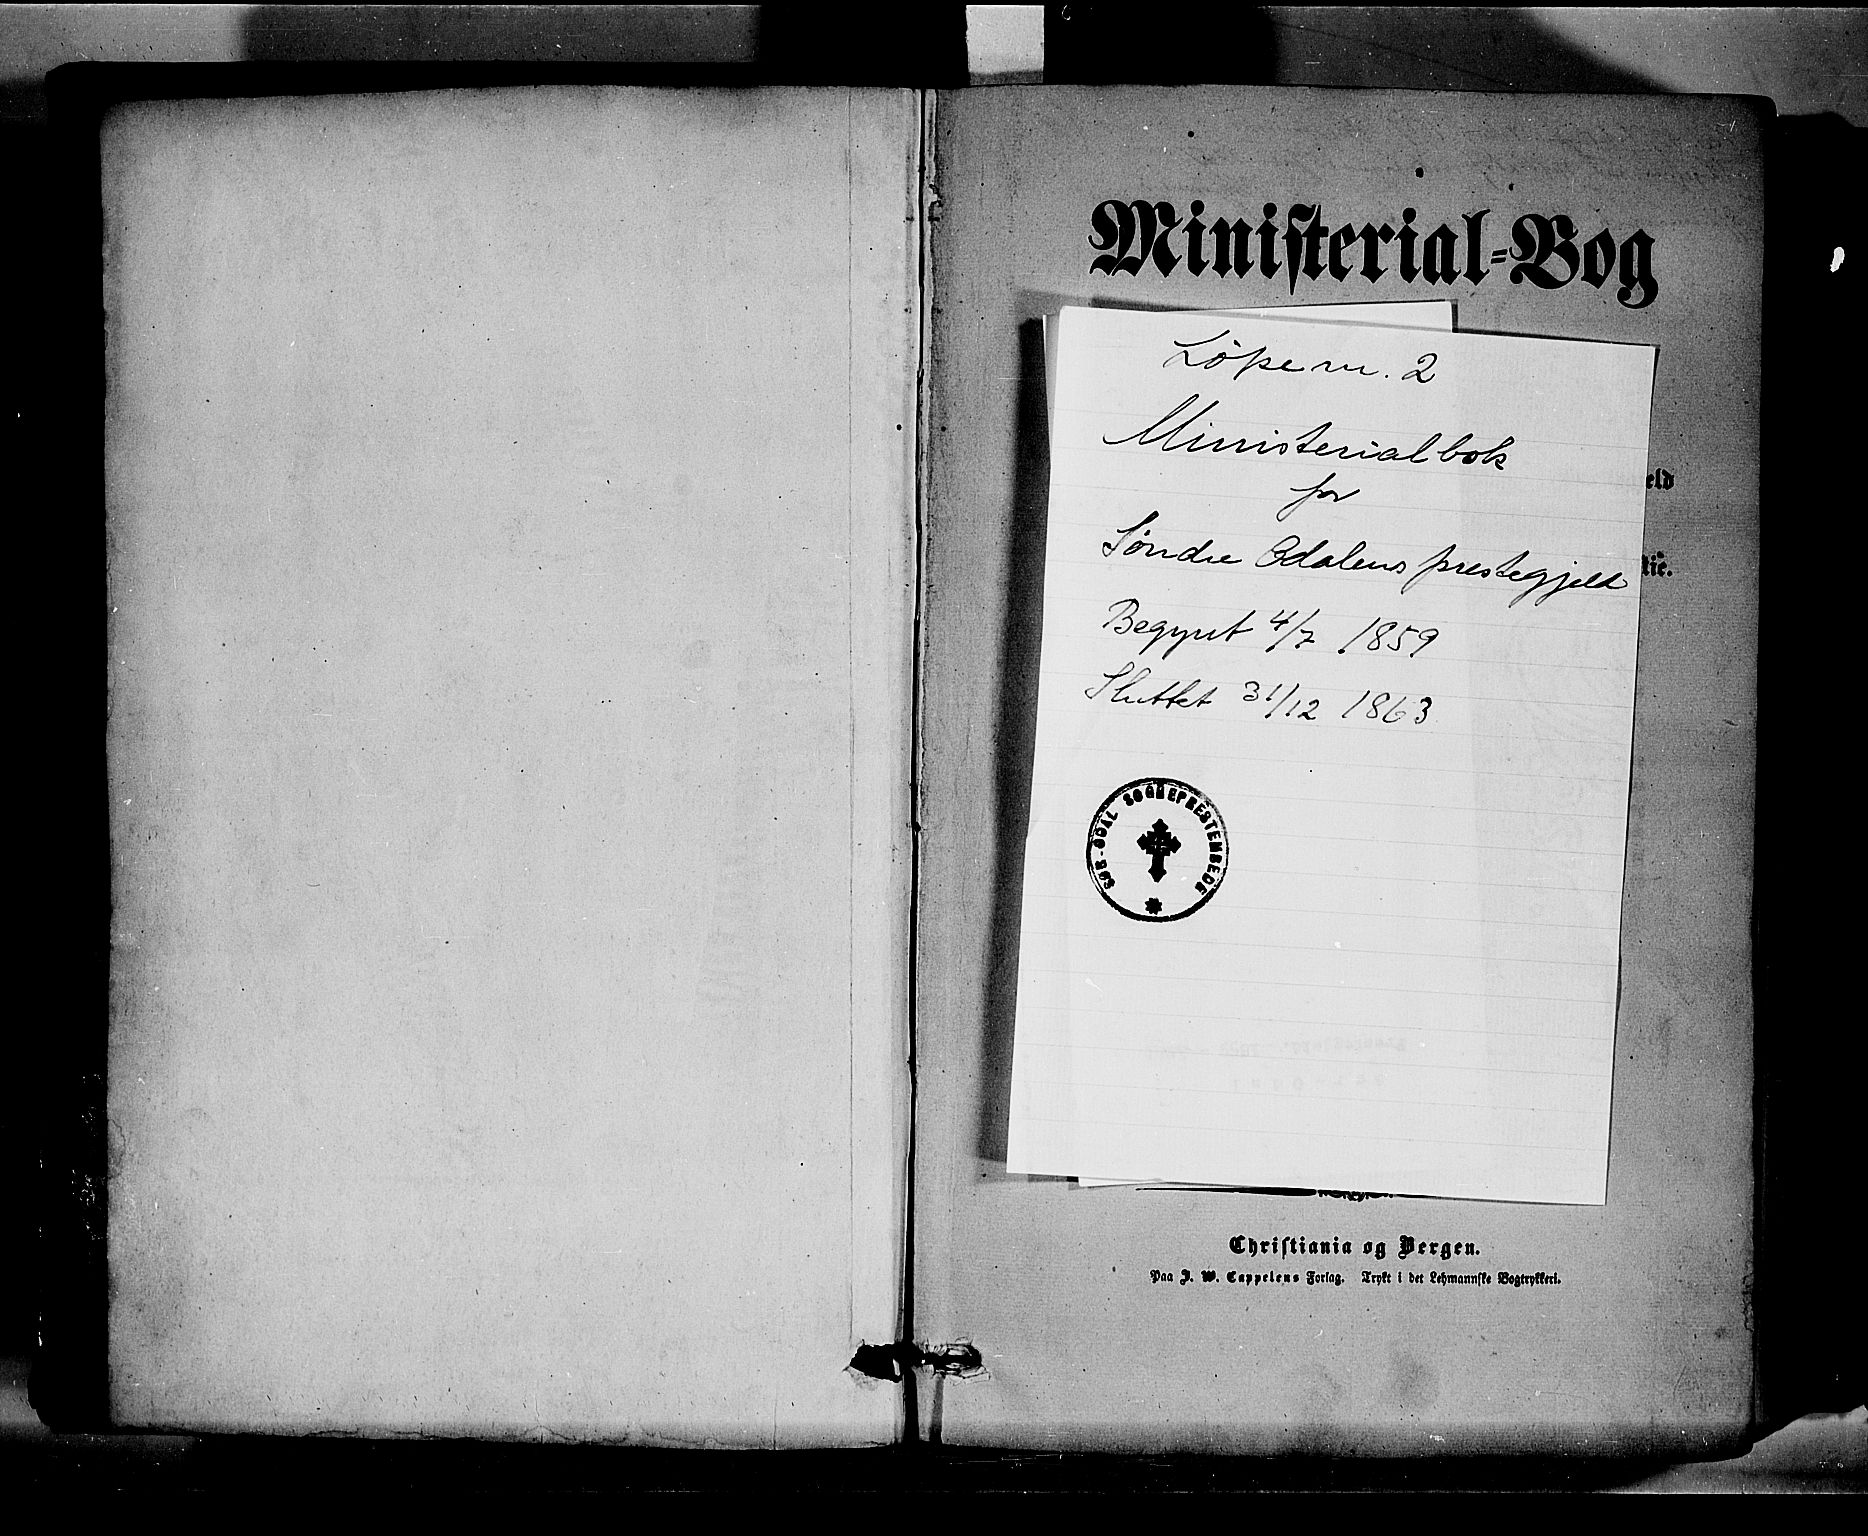 Ministerial=Bog
Löpe nr. 2
Ministerialbok
for
Søndre Odalens prestegjeld
Begynt 4/7 1859
Sluttet 31/12 1863
SØR-ODAL SOGNEPRESTEMBEDE
eld
tie.
Christiania og Bergen.
Paa J. W. Cappelens Forlag. Trykt i det Lehmannske Bogtrykkeri.